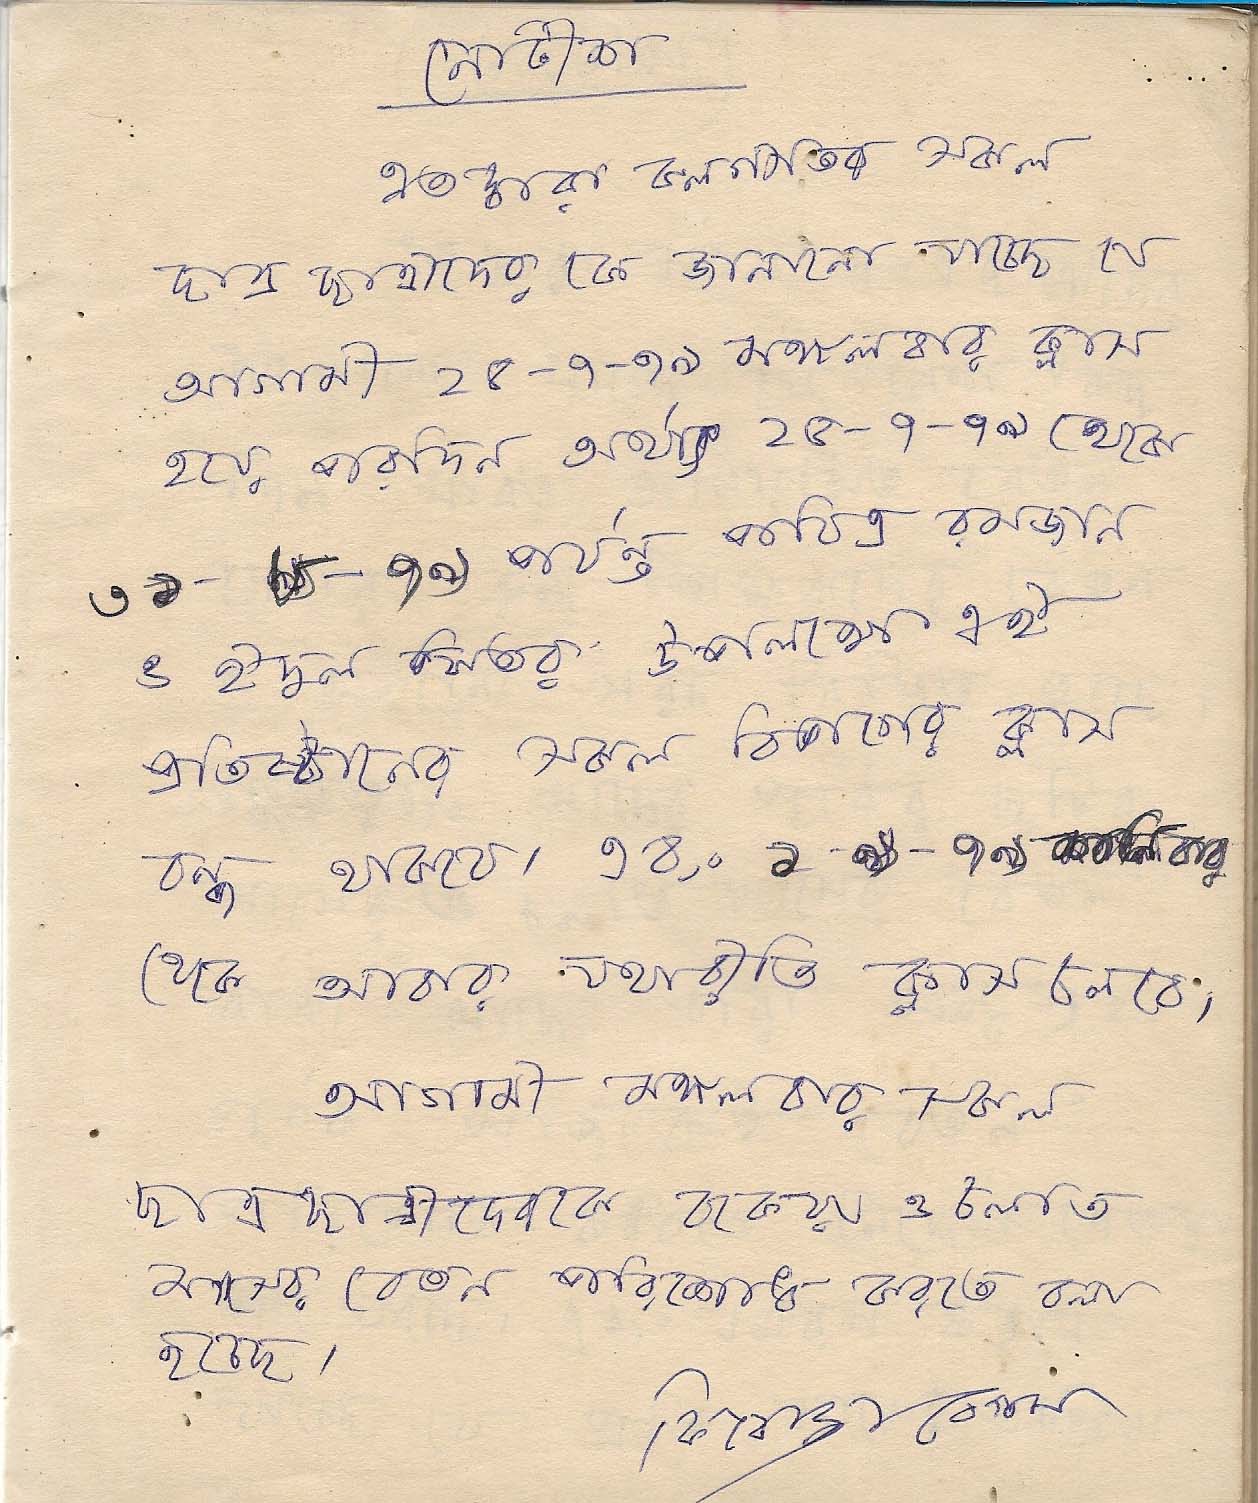 নোটীশ
এতদ্বারা কলাগীতির সকল
ছাত্র ছাত্রীদের কে জানানো যাচ্ছে যে
আগামী ২৪-৭-৭৯ মঙ্গলবার ক্লাস
হয়ে পরদিন অর্থাৎ ২৫-৭-৭৯ থেকে
৩১- ৮-৭৯ পর্যন্ত পবিত্র রমজান
ও ঈদুল ফিতর উপলক্ষে এই
প্রতিষ্ঠানের সকল বিভাগের ক্লাস
বন্ধ থাকবে। এবং ১-৯-৭৯ শনিবার
থেকে আবার যথারীতি ক্লাস চলবে।
আগামী মঙ্গলবার সকল
ছাত্র ছাত্রীদেরকে বকেয়া ও চলতি
মাসের বেতন পরিশোধ করতে বলা
হচ্ছে।
ফিরোজা বেগম